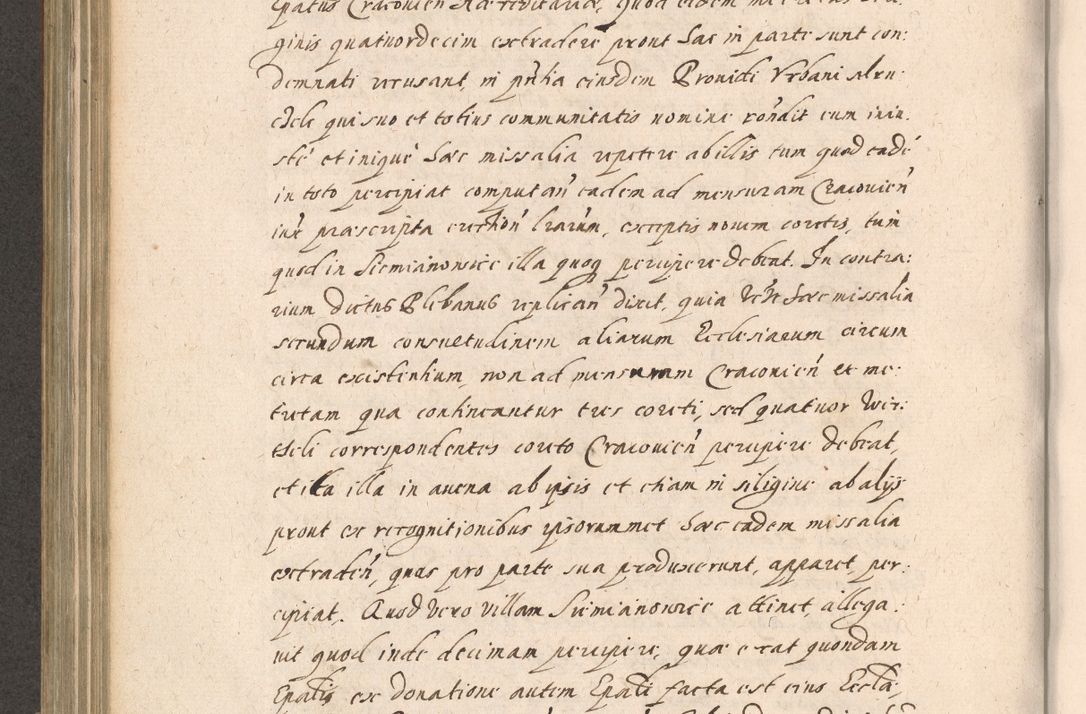 epatus Cracovien̄ Haereditariae, quod eidem
ginis quatuordecim extradere prout Haec in parte sunt con:
demnati recusant, in pn̄tia eiusdem Providi Urbani
qui suo et totius communitatis nomine rōndit eum iniu:
stè et iniquè Haec missalia repetere ab illis tum quod eadē
in toto percipiat computan̄ eadem ad mensuram Cracovien̄
iux̄ praescripta erection̄ lrārum, exceptis novem coretis, tum
quod in Siemianowice illa quoq percipere debeat. In contra:
rium dictus Plebanus replican̄ dixit, quia Haec missalia
secundum consuetudinem aliarum Ecclesiarum circum
circa existentium, non ad mensuram Cracovien̄ et me:
tretam qua contineantur tres coreti, sed quatuor Wier:
theli correspondentes coreto Cracovien̄ percipere debeat,
et ita illa in avena ab ipsis et etiam in siligine ab alijs
prout ex recognitionibus ipsorummet Haec eadem missalia
extraden̄, quas pro parte sua produxerunt, apparet, per:
cipiat. Quod vero villam Siemianowice attinet, allega:
vit quod inde decimam percipere, quae erat quondam
Epalis ex donatione autem Epali facta est eius Eccla,